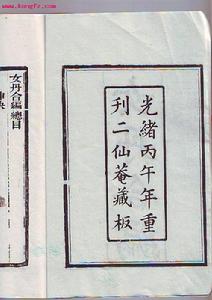 www.kongfz.com
光緒丙午年重
刊二仙菴藏板
女丹合編總目